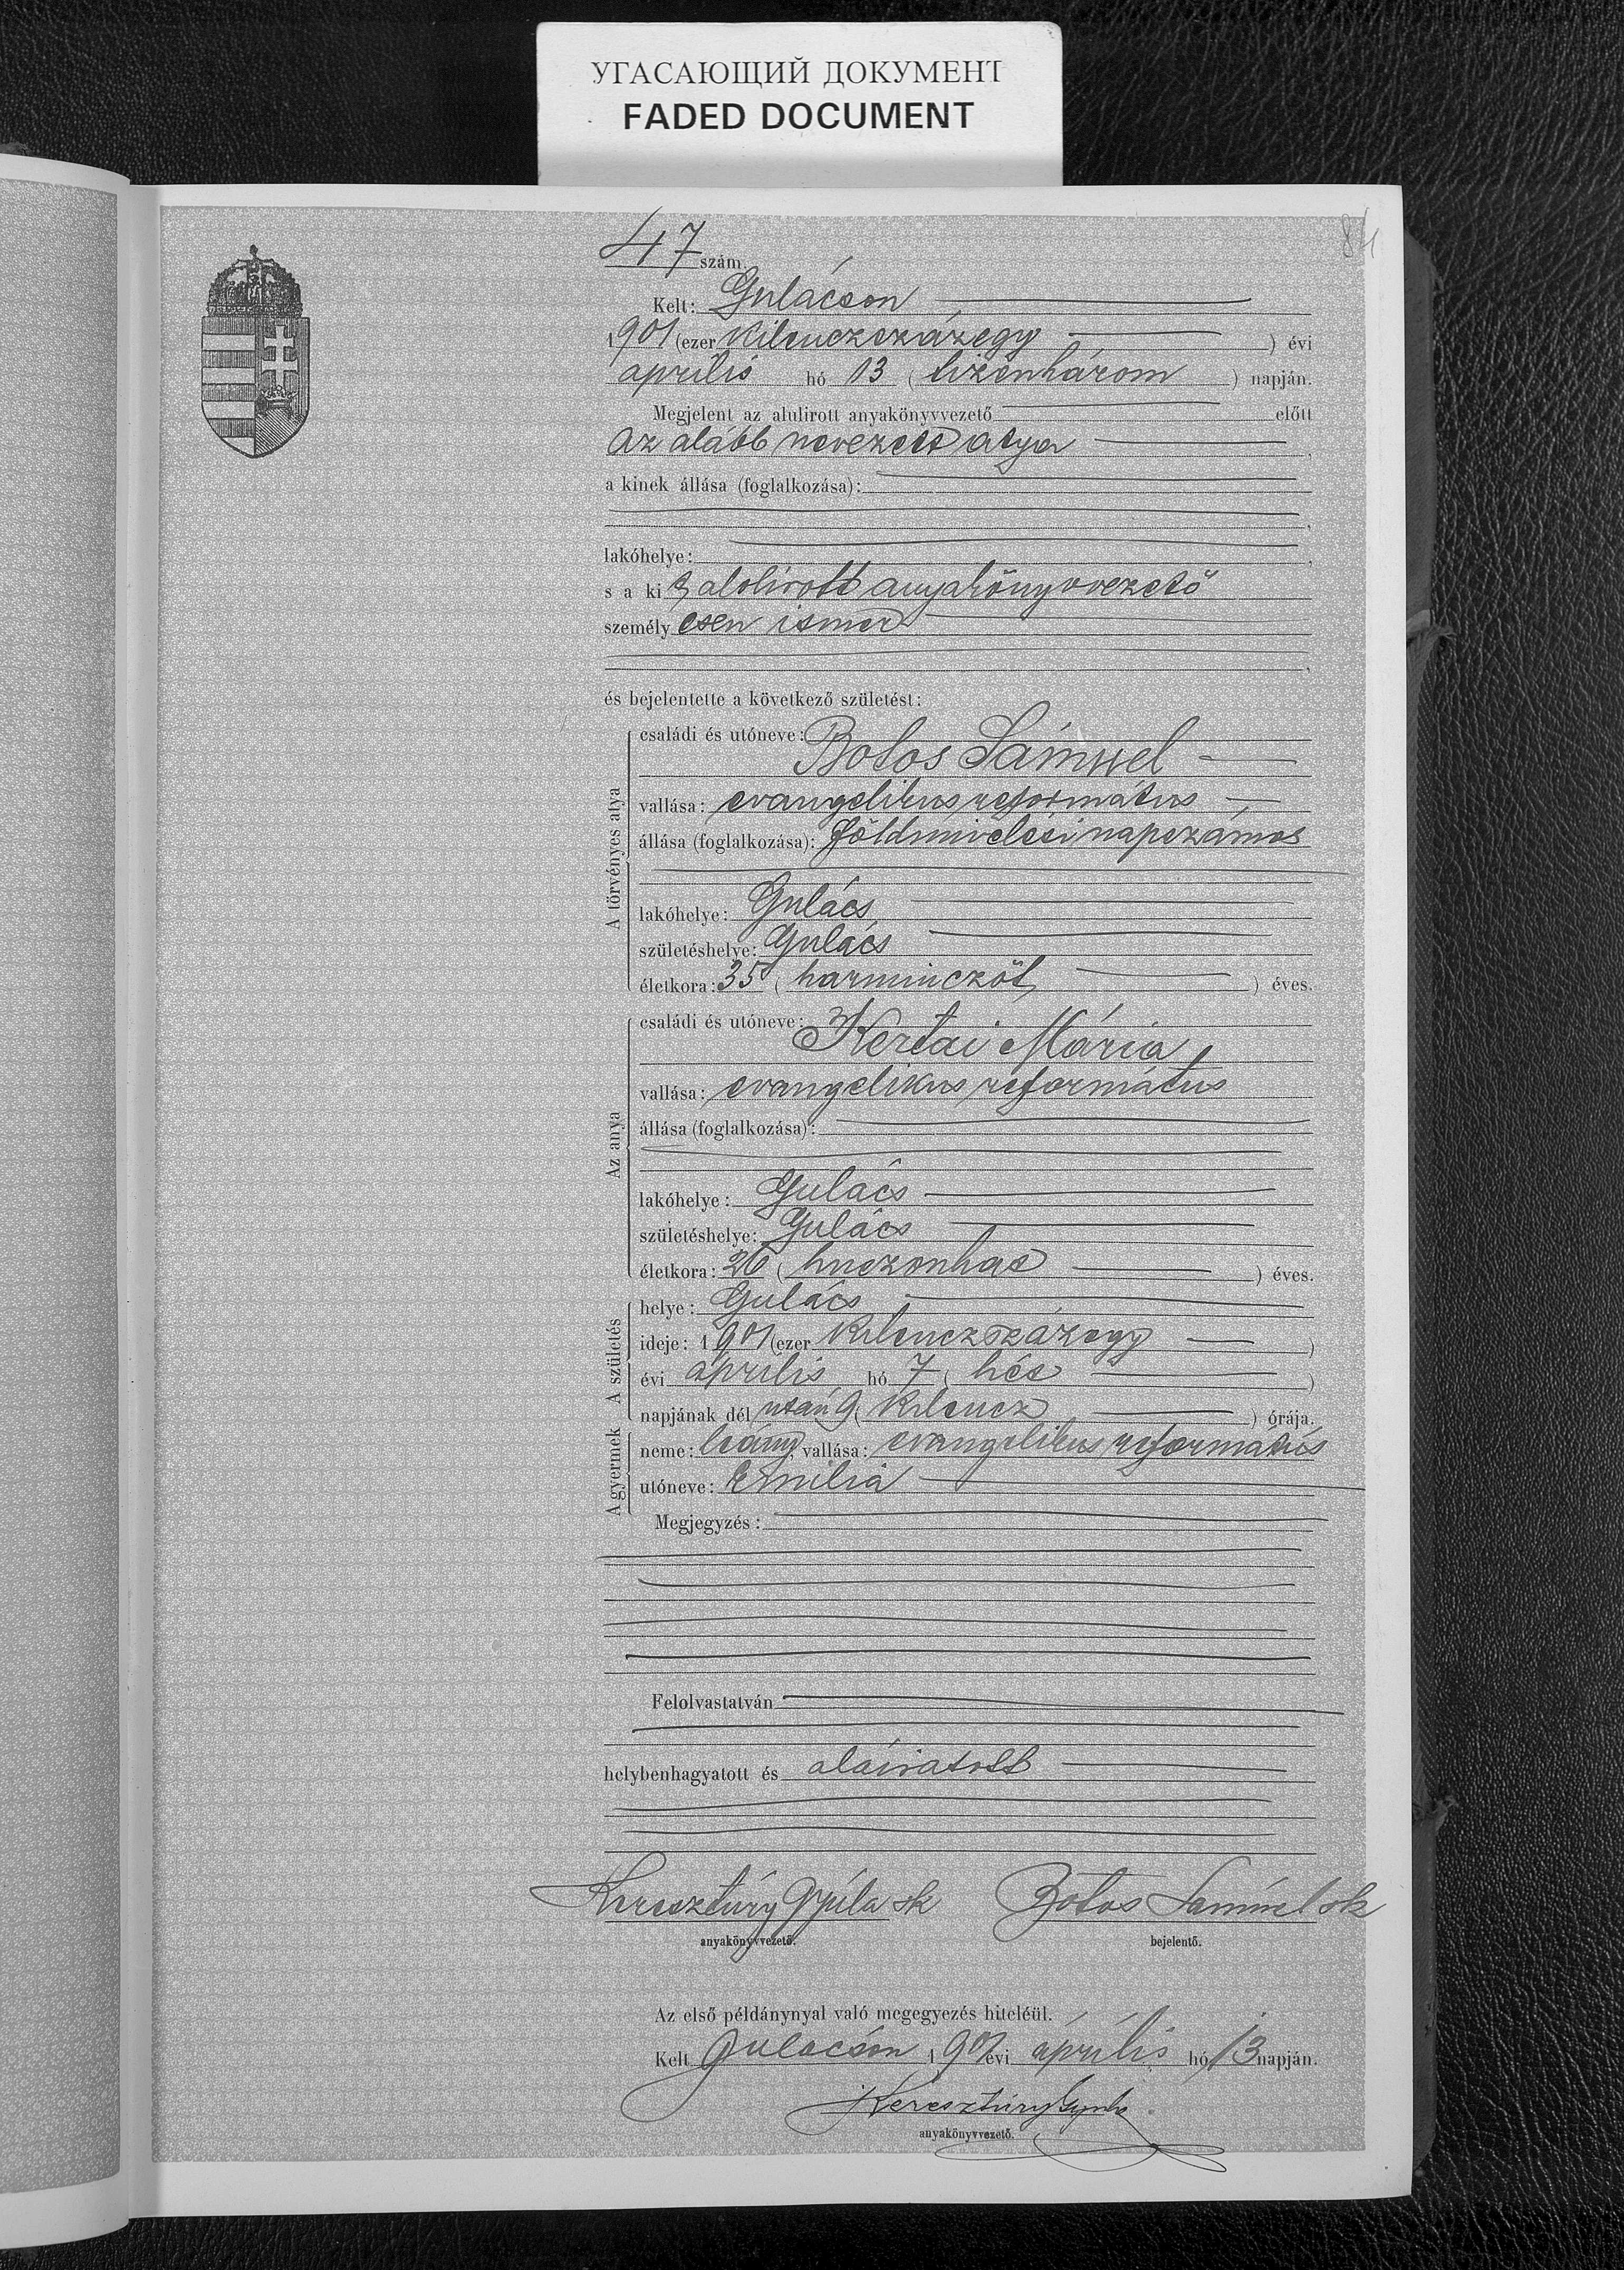 УГАСАЮЩИЙ ДОКУМЕНТ
FADED DOCUMENT
84
47 szám
Kelt: Gulácson
1901 (ezer kilenczszázegy ) évi
április hó 13 ( tizenhárom ) napján.
Megjelent az alulirott anyakönyvvezető előtt
az alább nevezett atya ,
a kinek állása (foglalkozása):
lakóhelye: ,
s a kit alolirott anyakönyvvezető
személy esen ismer
és bejelentette a következő születést:
A törvényes atya
családi és utóneve: Botos Sámuel
vallása: evangelikus református
állása (foglalkozása): földmivelési napszámos
lakóhelye: Gulács
születéshelye: Gulács
életkora: 35 ( harminczöt ) éves.
Az anya
családi és utóneve: Kertai Mária
vallása: evangelikus református
állása (foglalkozása):
lakóhelye: Gulács
születéshelye: Gulács
életkora: 26 ( huszonhat ) éves.
A születés
helye: Gulács
ideje: 1901 (ezer kilenczszázegy )
évi április hó 7 ( hét )
napjának dél után 9 ( kilencz ) órája.
A gyermek
neme: leány, vallása: evangelikus református
utóneve: Emilia
Megjegyzés:
Felolvastatván
helybenhagyatott és aláiratott
Keresztúry Gyúla sk Botos Sámúel sk
anyakönyvvezető. bejelentő.
Az első példánynyal való megegyezés hiteléül.
Kelt Gulacsón 1901 évi április hó 13 napján.
Keresztúry Gyula
anyakönyvvezető.